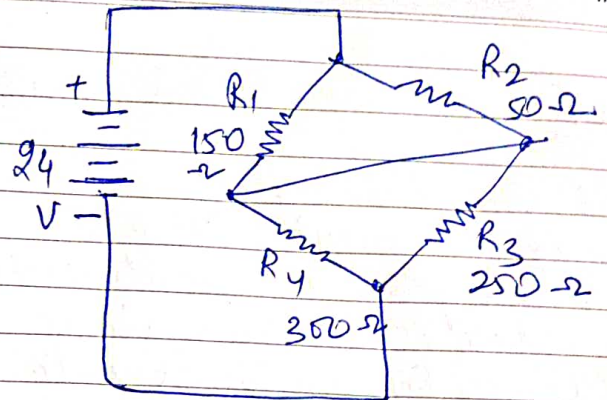 +
24
V −
R1
150
Ω
R2
50 Ω
R3
250 Ω
R4
300 Ω